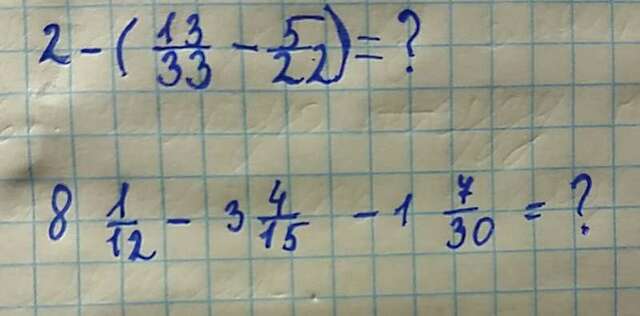 2 - (13/33 - 5/22) = ?
8 1/12 - 3 4/15 - 1 7/30 = ?